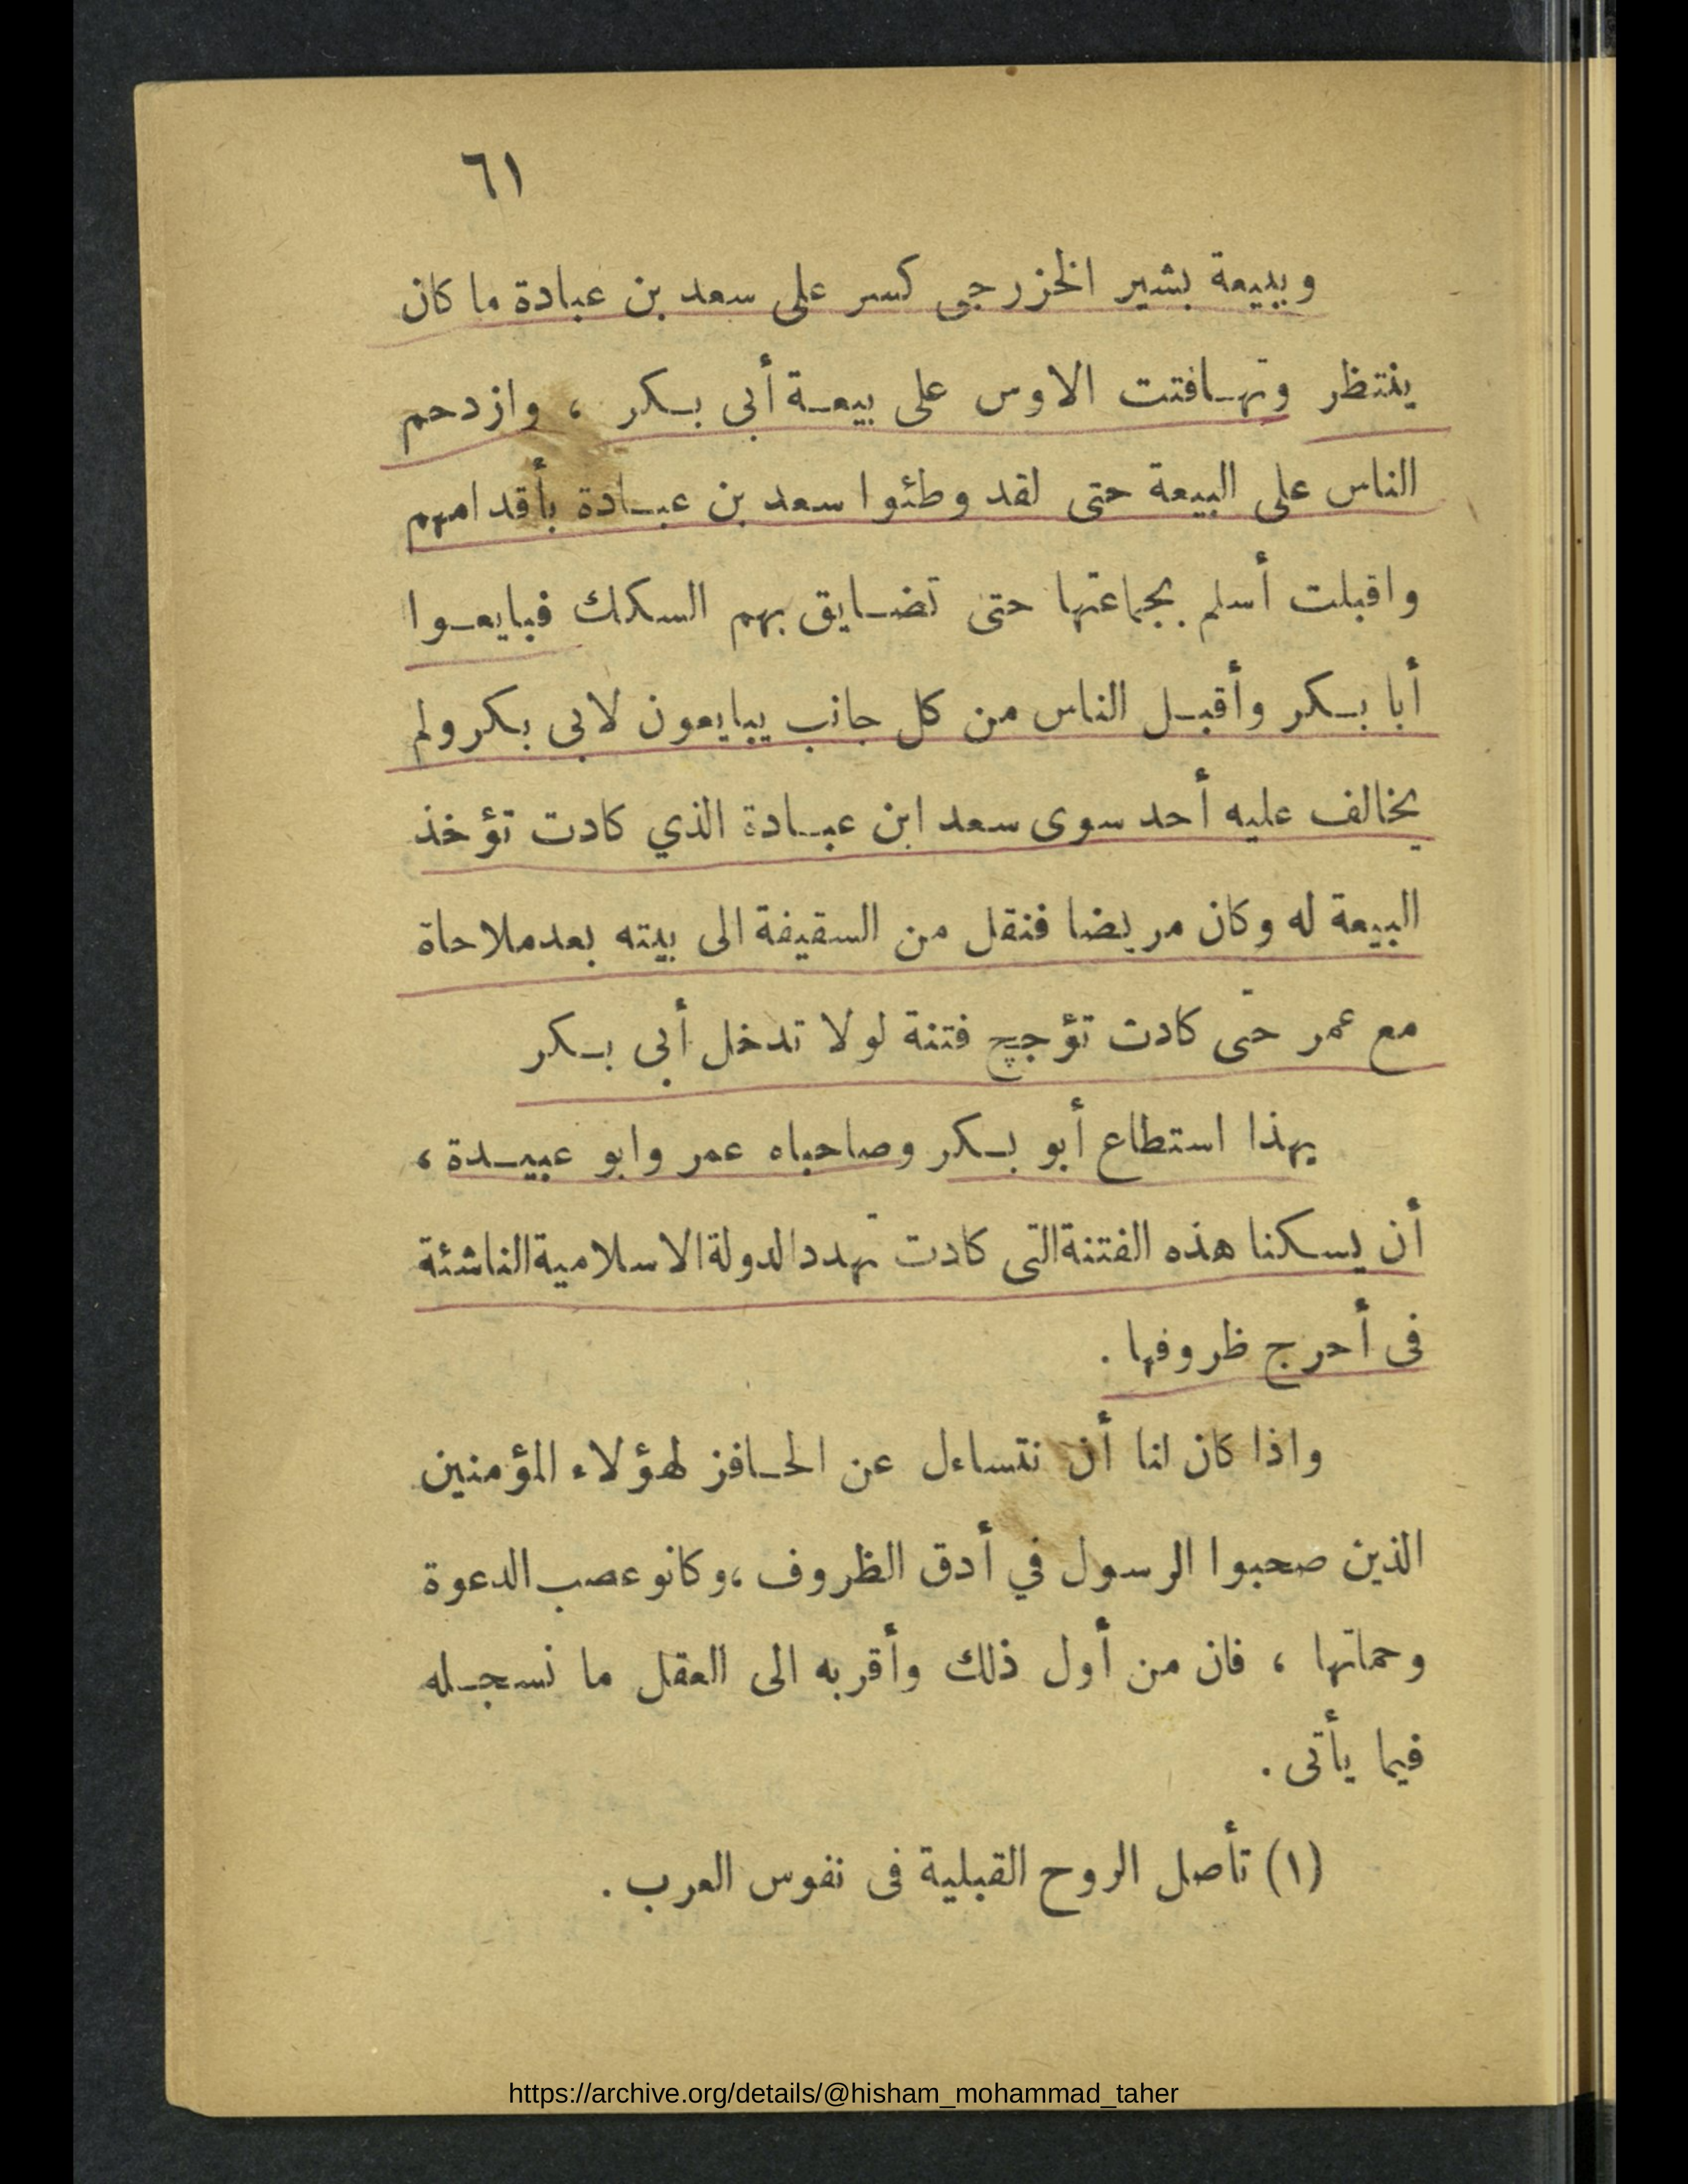 ٦١
وبيعة بشير الخزرجى كسر على سعد بن عبادة ما كان
ينتظر وتهـافتت الاوس على بيعـة أبى بـكر ، وازدحم
الناس على البيعة حتى لقد وطئوا سعد بن عبـادة بأقدامهم
واقبلت أسلم بجماعتها حتى تضـايق بهم السكك فبايعـوا
أبا بـكر وأقبـل الناس من كل جانب يبايعون لابى بكر ولم
يخالف عليه أحد سوى سعد ابن عبـادة الذي كادت تؤخذ
البيعة له وكان مريضا فنقل من السقيفة الى بيته بعد ملاحاة
مع عمر حتى كادت تؤجج فتنة لولا تدخل أبى بـكر
بهذا استطاع أبو بـكر وصاحباه عمر وابو عبيـدة ،
أن يسكنا هذه الفتنة التى كادت تهدد الدولة الاسلامية الناشئة
فى أحرج ظروفها .
واذا كان لنا أن نتساءل عن الحـافز لهؤلاء المؤمنين
الذين صحبوا الرسول في أدق الظروف ، وكانو عصب الدعوة
وحماتها ، فان من أول ذلك وأقربه الى العقل ما نسجـله
فيما يأتى .
(١) تأصل الروح القبلية فى نفوس العرب .
https://archive.org/details/@hisham_mohammad_taher